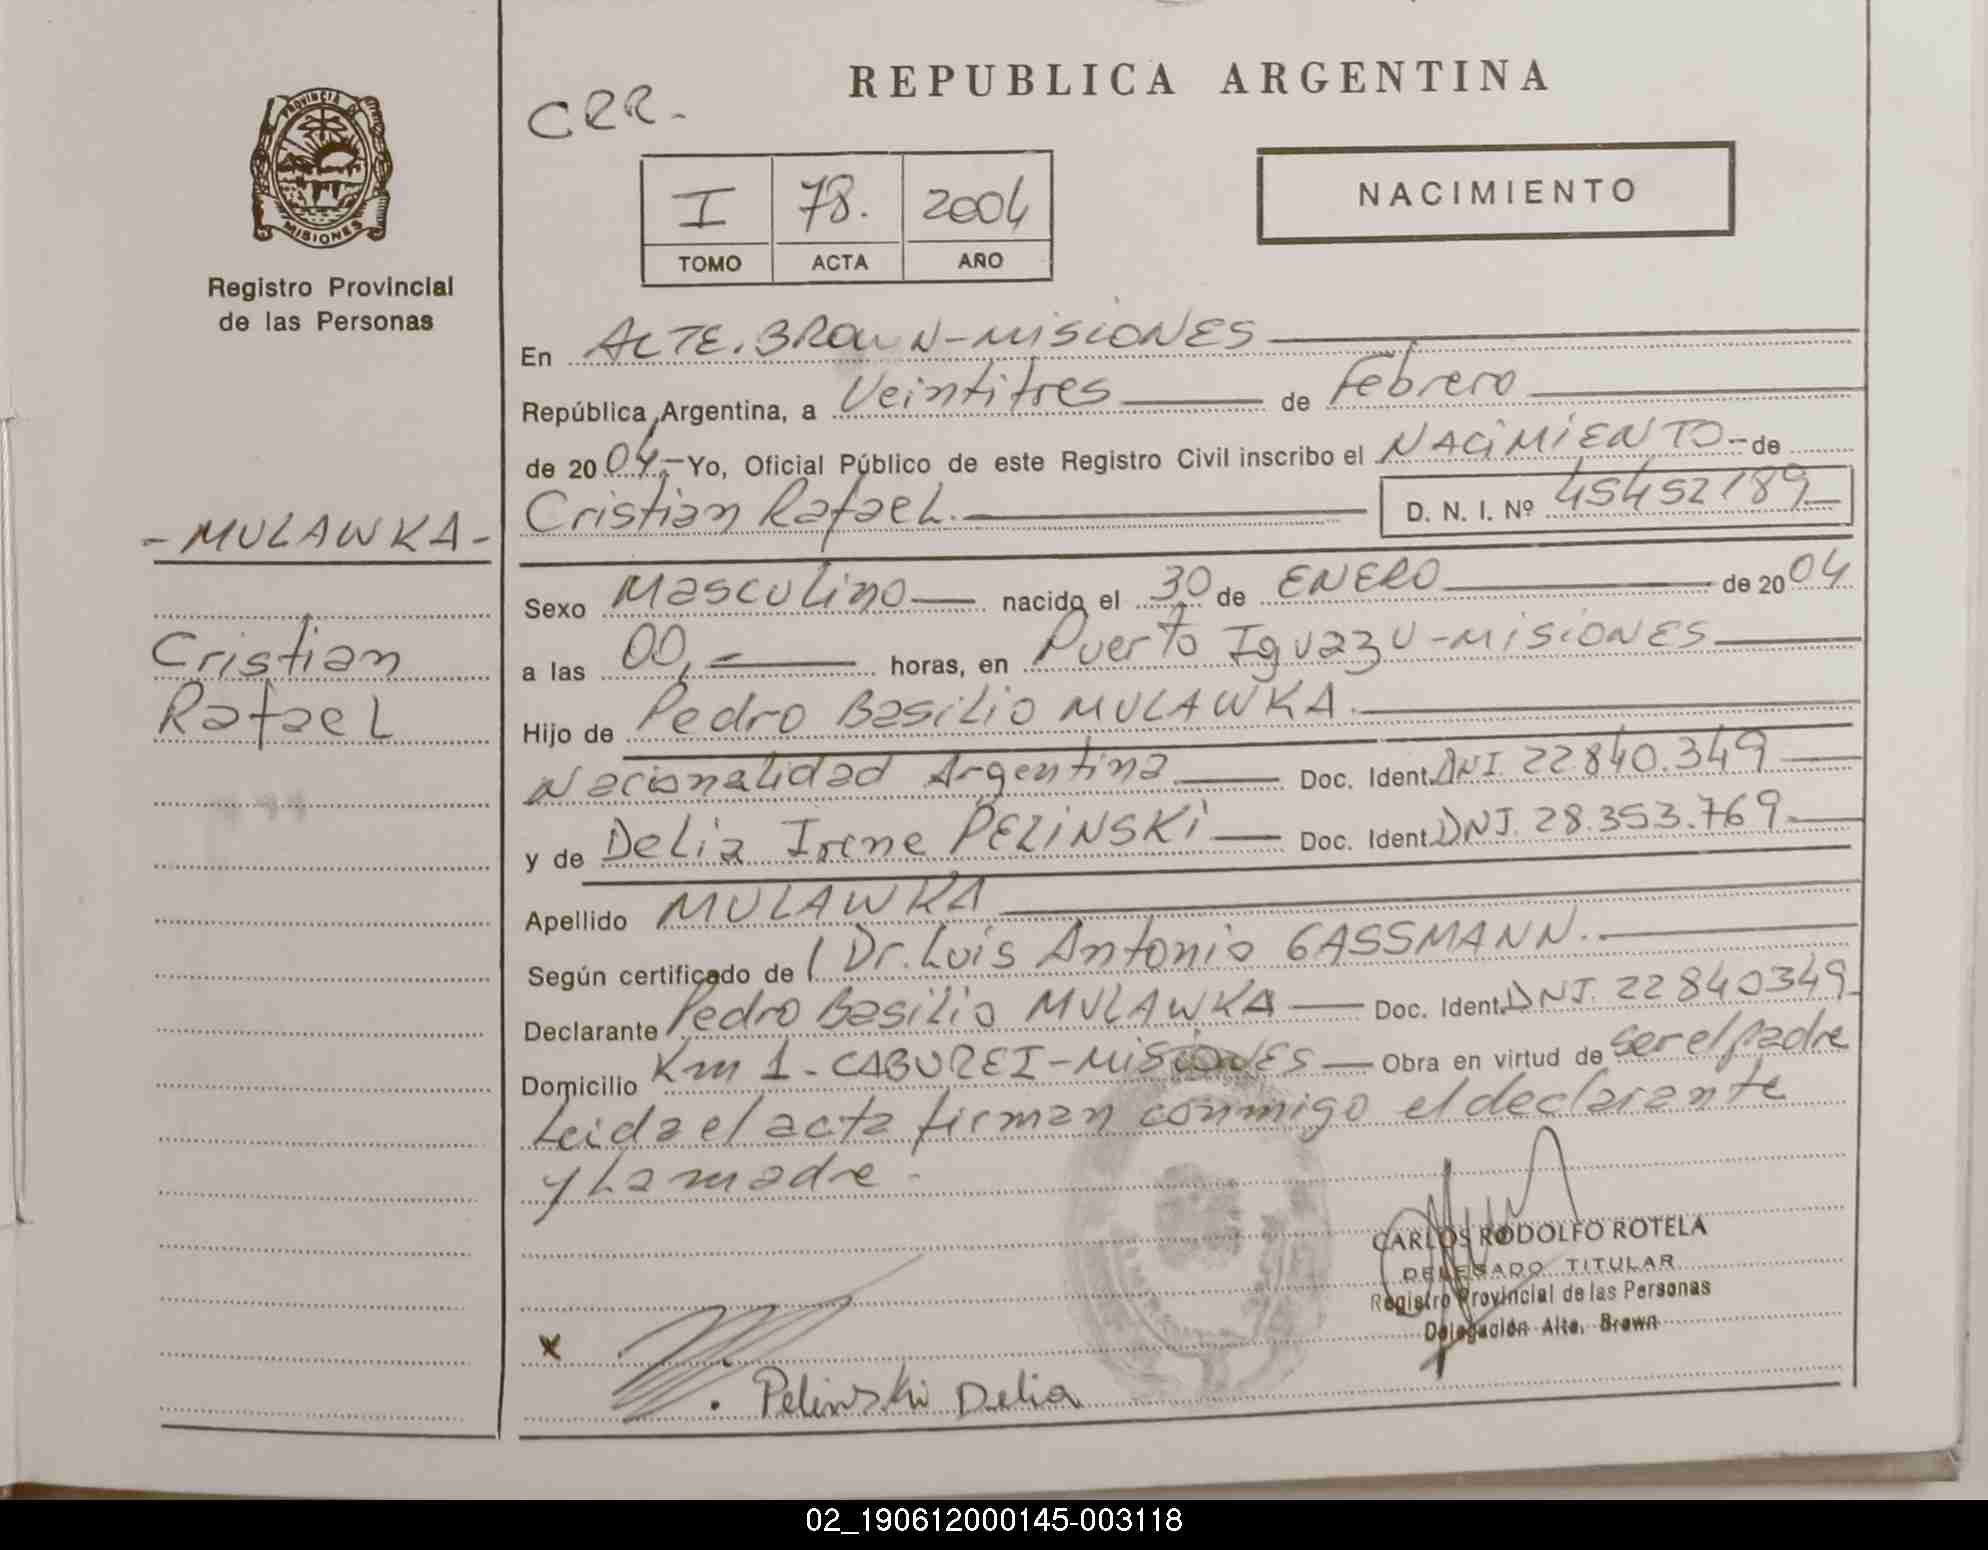 REPUBLICA ARGENTINA
CRR.
PROVINCIA DE
MISIONES
Registro Provincial
de las Personas
I 78. 2004
TOMO ACTA AÑO
NACIMIENTO
En ALTE. BROWN-MISIONES
República Argentina, a Veintitres de Febrero
de 2004.- Yo, Oficial Público de este Registro Civil inscribo el NACIMIENTO- de
Cristian Rafael. D. N. I. Nº 45452189
-MULAWKA-
Cristian
Rafael
Sexo Masculino nacido el 30 de ENERO de 2004
a las 00,- horas, en Puerto Iguazu-MISIONES
Hijo de Pedro Basilio MULAWKA.
Nacionalidad Argentina Doc. Ident. DNI. 22840.349
y de Delia Irene PELINSKI Doc. Ident. DNI. 28.353.769
Apellido MULAWKA
Según certificado de Dr. Luis Antonio GASSMANN.
Declarante Pedro Basilio MULAWKA Doc. Ident. DNI. 22840349
Domicilio Km 1-CABUREI-MISIONES Obra en virtud de ser el padre
Leida el acta firman conmigo el declarante
y la madre.
CARLOS RODOLFO ROTELA
DELEGADO TITULAR
Registro Provincial de las Personas
Delegación Alte. Brown
x
Pelinski Delia
02_190612000145-003118